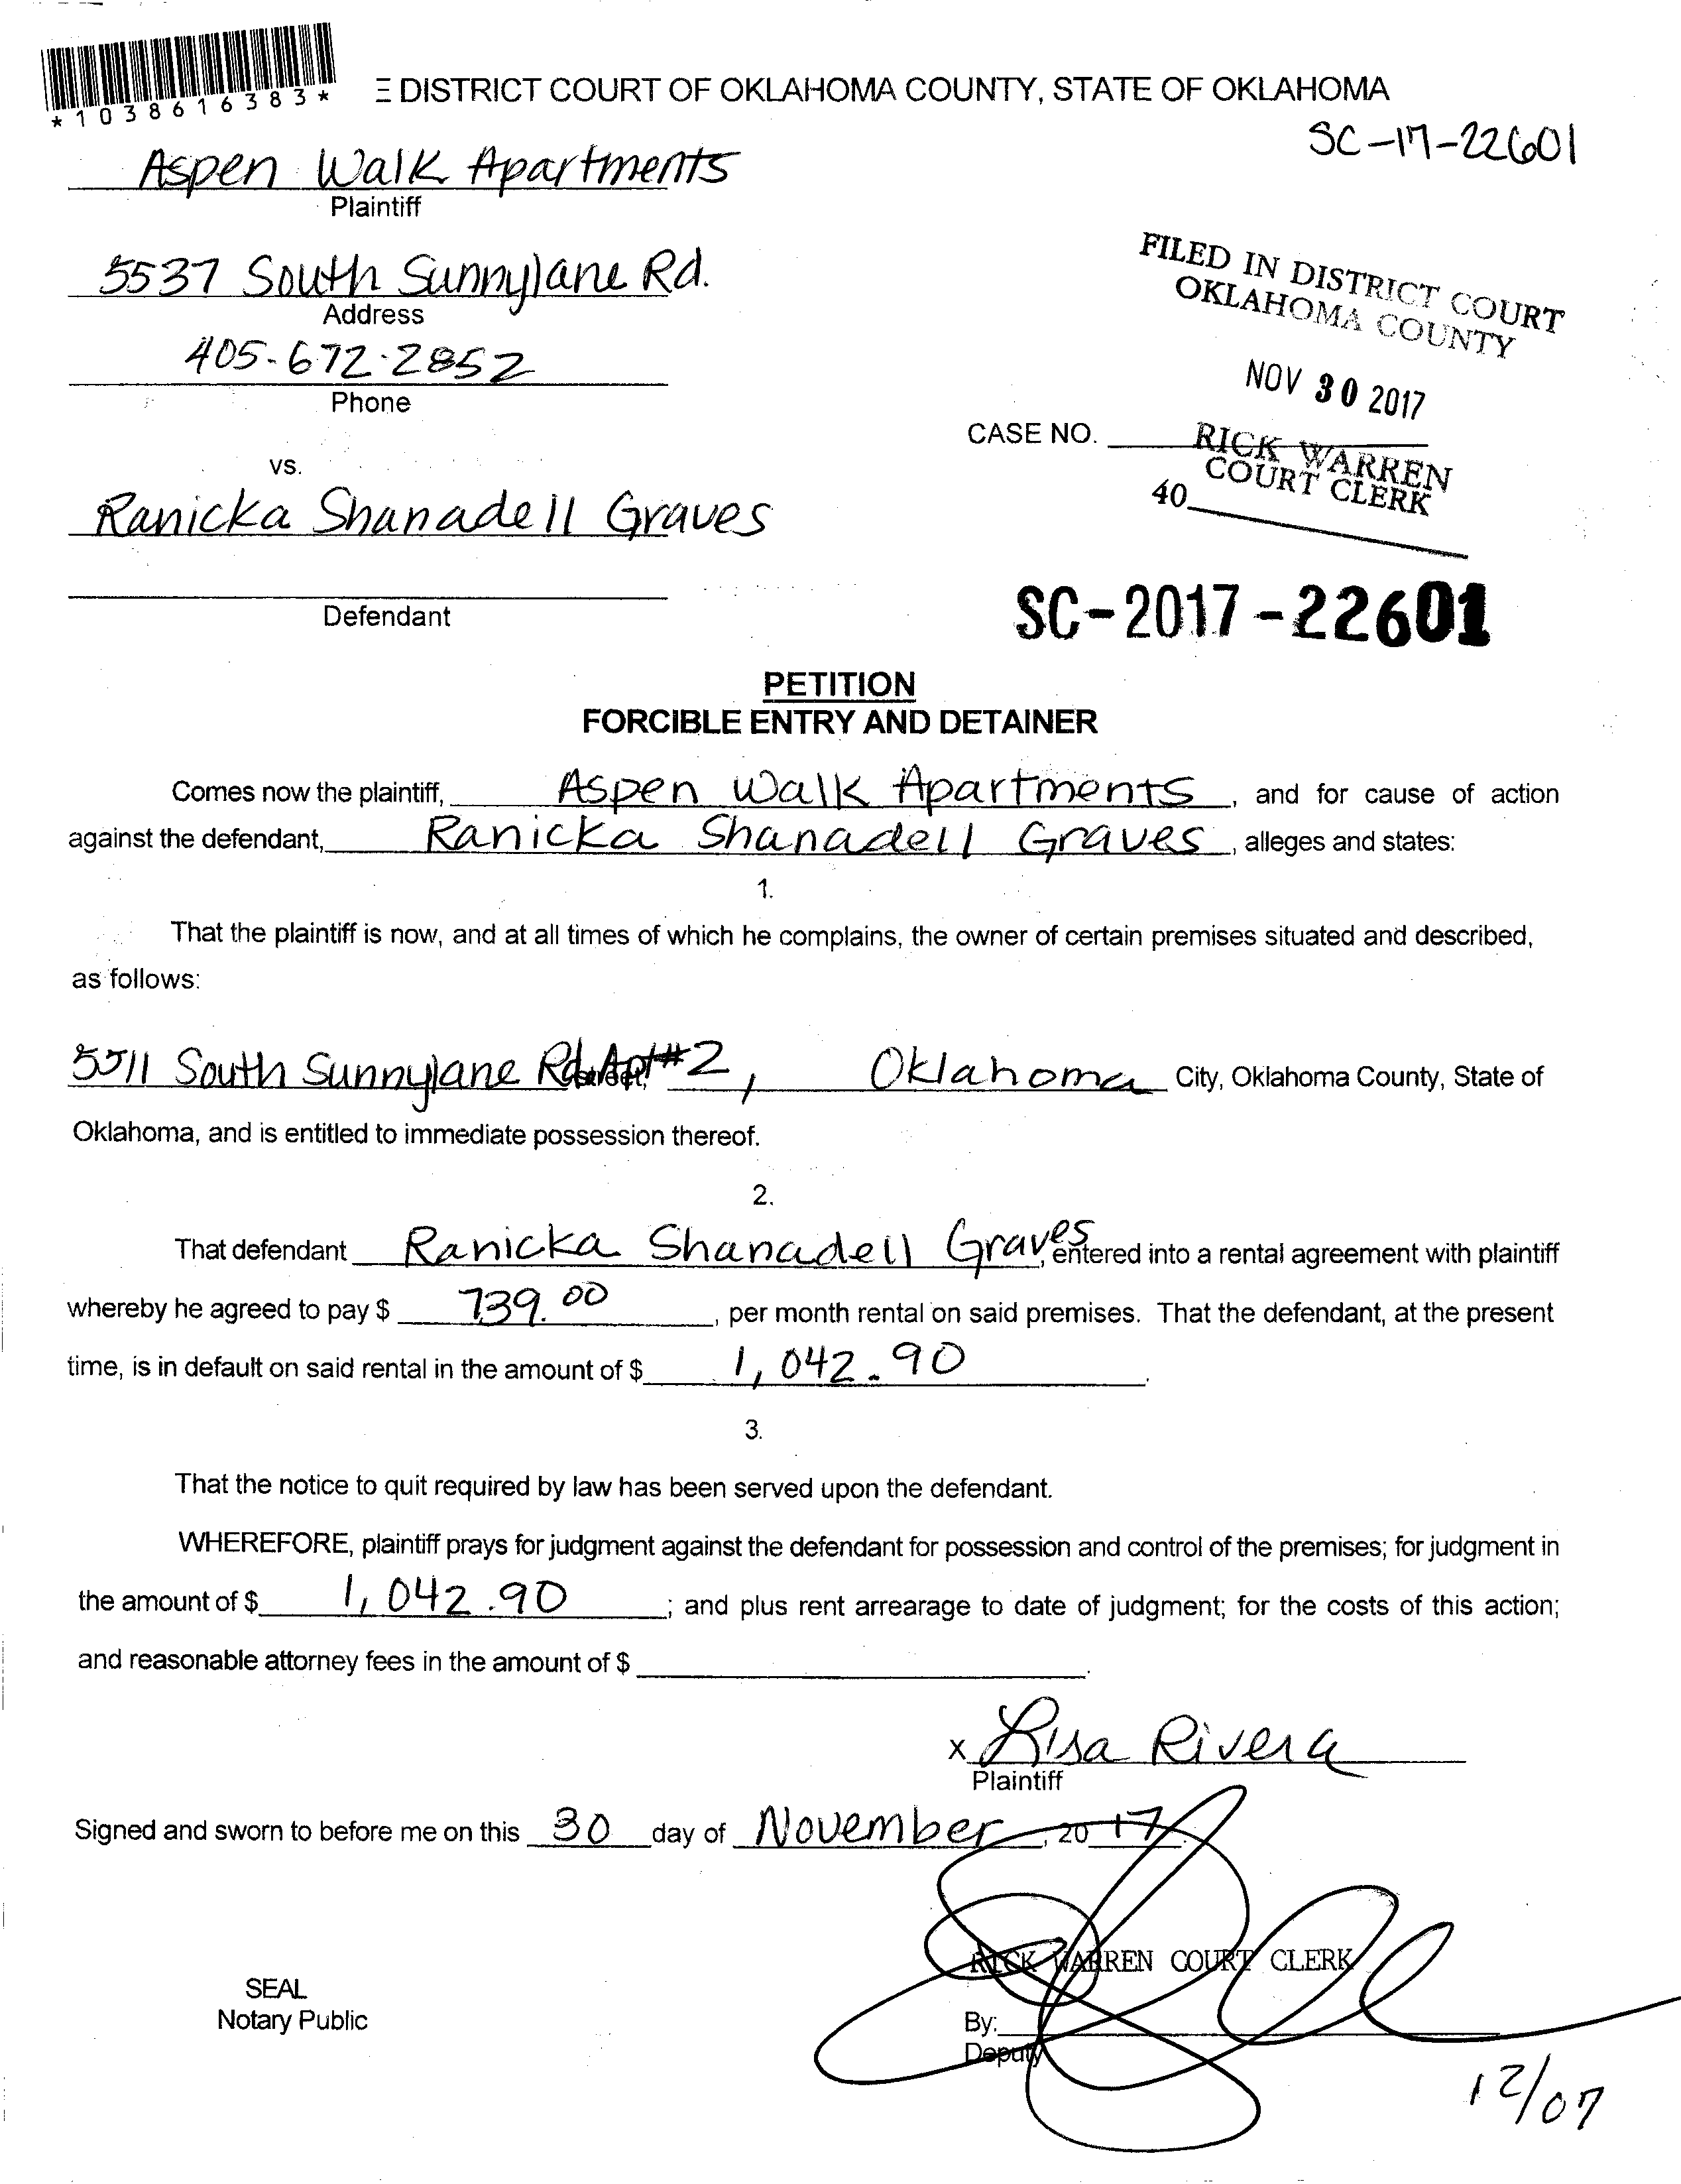 *1038616383*
E DISTRICT COURT OF OKLAHOMA COUNTY, STATE OF OKLAHOMA
SC-17-22601
Aspen Walk Apartments
Plaintiff
5537 South Sunnylane Rd.
Address
405-672-2852
Phone
FILED IN DISTRICT COURT
OKLAHOMA COUNTY
NOV 30 2017
CASE NO.
RICK WARREN
COURT CLERK
40
vs.
Ranicka Shanadell Graves
Defendant
SC-2017-22601
PETITION
FORCIBLE ENTRY AND DETAINER
Comes now the plaintiff, Aspen Walk Apartments, and for cause of action
against the defendant, Ranicka Shanadell Graves, alleges and states:
1.
That the plaintiff is now, and at all times of which he complains, the owner of certain premises situated and described,
as follows:
5511 South Sunnylane Rd. Apt #2, Oklahoma City, Oklahoma County, State of
Oklahoma, and is entitled to immediate possession thereof.
2.
That defendant Ranicka Shanadell Graves, entered into a rental agreement with plaintiff
whereby he agreed to pay $ 739.00, per month rental on said premises. That the defendant, at the present
time, is in default on said rental in the amount of $ 1,042.90.
3.
That the notice to quit required by law has been served upon the defendant.
WHEREFORE, plaintiff prays for judgment against the defendant for possession and control of the premises; for judgment in
the amount of $ 1,042.90; and plus rent arrearage to date of judgment; for the costs of this action;
and reasonable attorney fees in the amount of $ .
x Lisa Rivera
Plaintiff
Signed and sworn to before me on this 30 day of November, 2017.
RICK WARREN COURT CLERK
SEAL
Notary Public
By:
Deputy
12/07